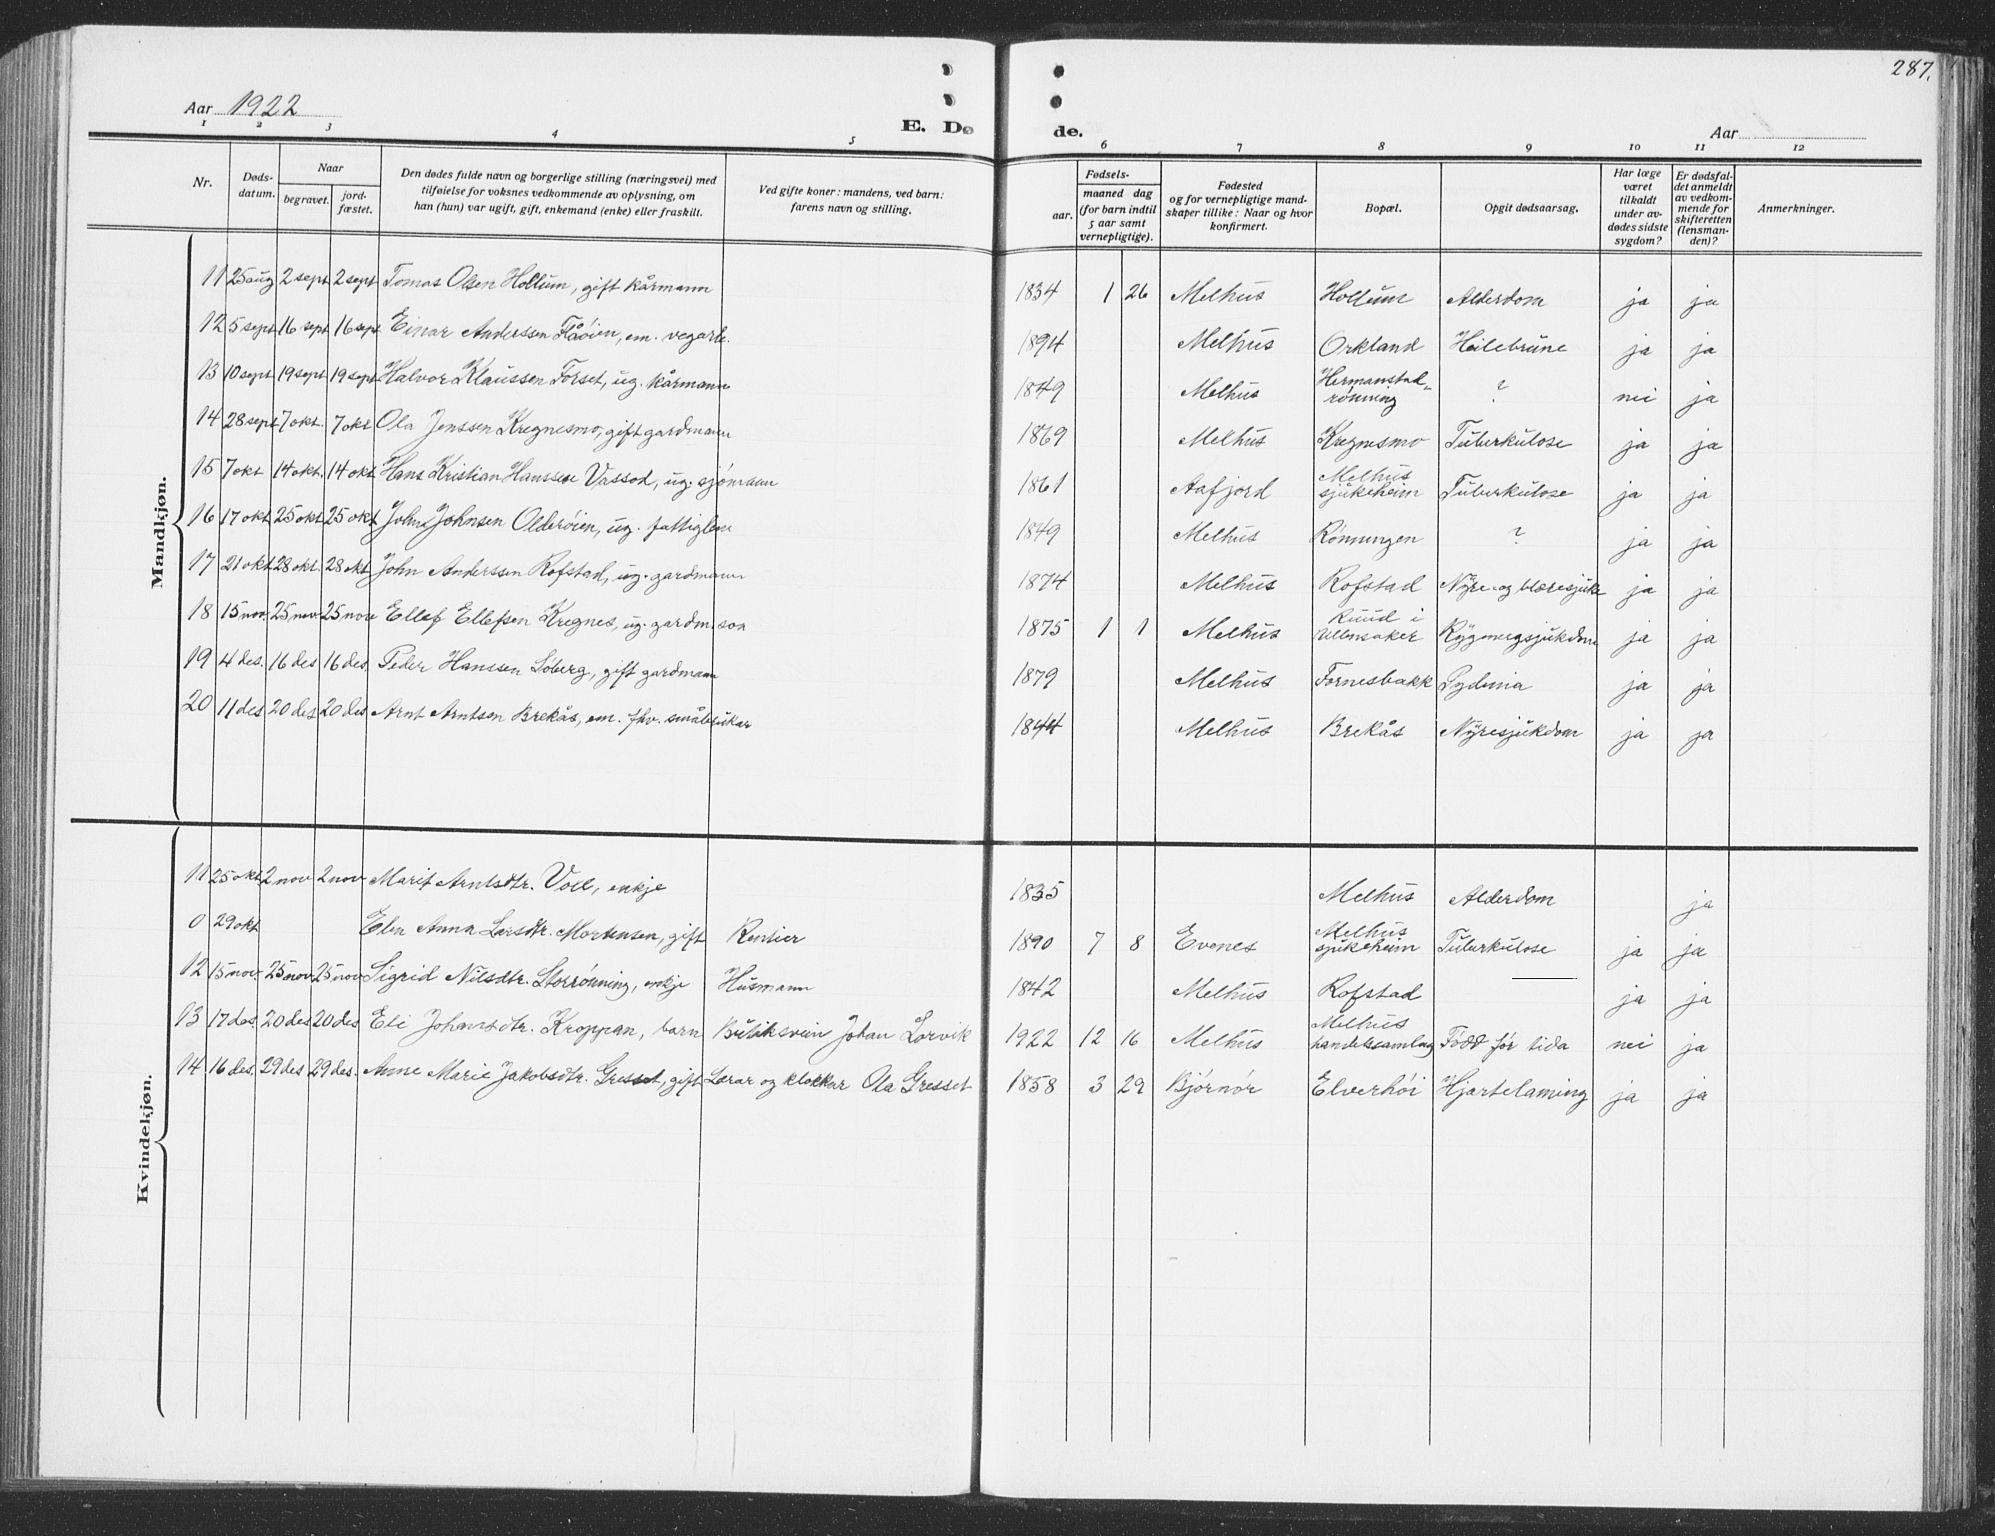 287.
Aar 1922
E. Dø de.
Aar
1 2 3 4 5 6 7 8 9 10 11 12
Nr.
Dødsdatum.
Naar
begravet.
jordfæstet.
Den dødes fulde navn og borgerlige stilling (næringsvei) med
tilføielse for voksnes vedkommende av oplysning, om
han (hun) var ugift, gift, enkemand (enke) eller fraskilt.
Ved gifte koner: mandens, ved barn:
farens navn og stilling.
Fødsels-
aar.
maaned dag
(for barn indtil
5 aar samt
vernepligtige).
Fødested
og for vernepligtige mand-
skaper tillike: Naar og hvor
konfirmert.
Bopæl.
Opgit dødsaarsag.
Har læge
været
tilkaldt
under av-
dødes sidste
sygdom?
Er dødsfal-
det anmeldt
av vedkom-
mende for
skifteretten
(lensman-
den)?
Anmerkninger.
Mandkjøn.
11 25 aug 2 sept 2 sept Tomas Olsen Hollum, gift kårmann 1834 1 26 Melhus Hollum Alderdom ja ja
12 5 sept 16 sept 16 sept Einar Anderssen Flåøien, em. vegarb. 1894 Melhus Orkland Heilebrune ja ja
13 10 sept 19 sept 19 sept Halvor Klaussen Forset, ug. kårmann 1849 Melhus Hermanstad-
rönning ? nei ja
14 28 sept 7 okt. 7 okt Ola Jenssen Kregnesmo, gift gardmann 1869 Melhus Kregnesmo Tuberkulose ja ja
15 7 okt 14 okt. 14 okt Hans Kristian Hanssen Vassod, ug. sjømann 1861 Aafjord Melhus
sjukeheim Tuberkulose ja ja
16 17 okt 25 okt 25 okt John Johnsen Olderøien, ug. fattiglem 1849 Melhus Rönningen ? ja ja
17 21 okt 28 okt. 28 okt John Anderssen Rofstad, ug. gardmann 1874 Melhus Rofstad Nyre- og blæresjuke ja ja
18 15 nov. 25 nov 25 nov Ellef Ellefsen Kregnes, ug. gardm. son 1875 1 1 Melhus Ruud i
Ullensaker Rygmergsjukdom ja ja
19 4 des. 16 des 16 des. Peder Hanssen Søberg, gift gardmann 1879 Melhus Fornesbakk ja ja
20 11 des 20 des 20 des Arnt Arntsen Brekås, em. fhv. småbrukar 1844 Melhus Brekås Nyresjukdom ja ja
Kvindekjøn.
11 25 okt 2 nov 2 nov Marit Arntsdtr. Voll, enkje 1835 Melhus Alderdom ja
0 29 okt Elen Anna Larsdtr. Mortensen, gift Rentier 1890 7 8 Evenes Melhus
sjukeheim Tuberkulose ja ja
12 15 nov. 25 nov 25 nov Sigrid Nilsdtr. Storrønning, enkje Husmann 1842 Melhus Rofstad — ja ja
13 17 des. 20 des 20 des Eli Johansdtr. Kroppan, barn Butiksvein Johan Lorvik 1922 12 16 Melhus Melhus
handelssamlag Född før tida nei ja
14 16 des. 29 des 29 des. Anne Marie Jakobsdtr. Gresset, gift Lærar og klokkar Ola Gresset 1858 3 29 Bjørnør Elverhøi Hjartelaming ja ja